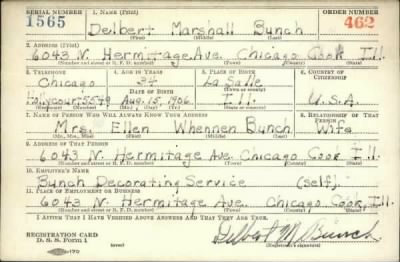 SERIAL NUMBER 1. NAME (Print) ORDER NUMBER
1565 Delbert Marshall Bunch 462
(First) (Middle) (Last)
2. ADDRESS (Print)
6043 N. Hermitage Ave. Chicago Cook Ill.
(Number and street or R. F. D. number) (Town) (County) (State)
3. TELEPHONE 4. AGE IN YEARS 5. PLACE OF BIRTH 6. COUNTRY OF CITIZENSHIP
Chicago 34 La Salle
DATE OF BIRTH (Town or county)
5549 Aug. 15, 1906 Ill. U.S.A.
(Exchange) (Number) (Mo.) (Day) (Yr.) (State or country)
7. NAME OF PERSON WHO WILL ALWAYS KNOW YOUR ADDRESS 8. RELATIONSHIP OF THAT PERSON
Mrs. Ellen Whennen Bunch Wife
(Mr., Mrs., Miss) (First) (Middle) (Last)
9. ADDRESS OF THAT PERSON
6043 N. Hermitage Ave. Chicago Cook Ill.
(Number and street or R. F. D. number) (Town) (County) (State)
10. EMPLOYER'S NAME
Bunch Decorating Service (Self)
11. PLACE OF EMPLOYMENT OR BUSINESS
6043 N. Hermitage Ave. Chicago Cook, Ill.
(Number and street or R. F. D. number) (Town) (County) (State)
I AFFIRM THAT I HAVE VERIFIED ABOVE ANSWERS AND THAT THEY ARE TRUE.
REGISTRATION CARD
D. S. S. Form 1 (over) Delbert M. Bunch
(Registrant's signature)